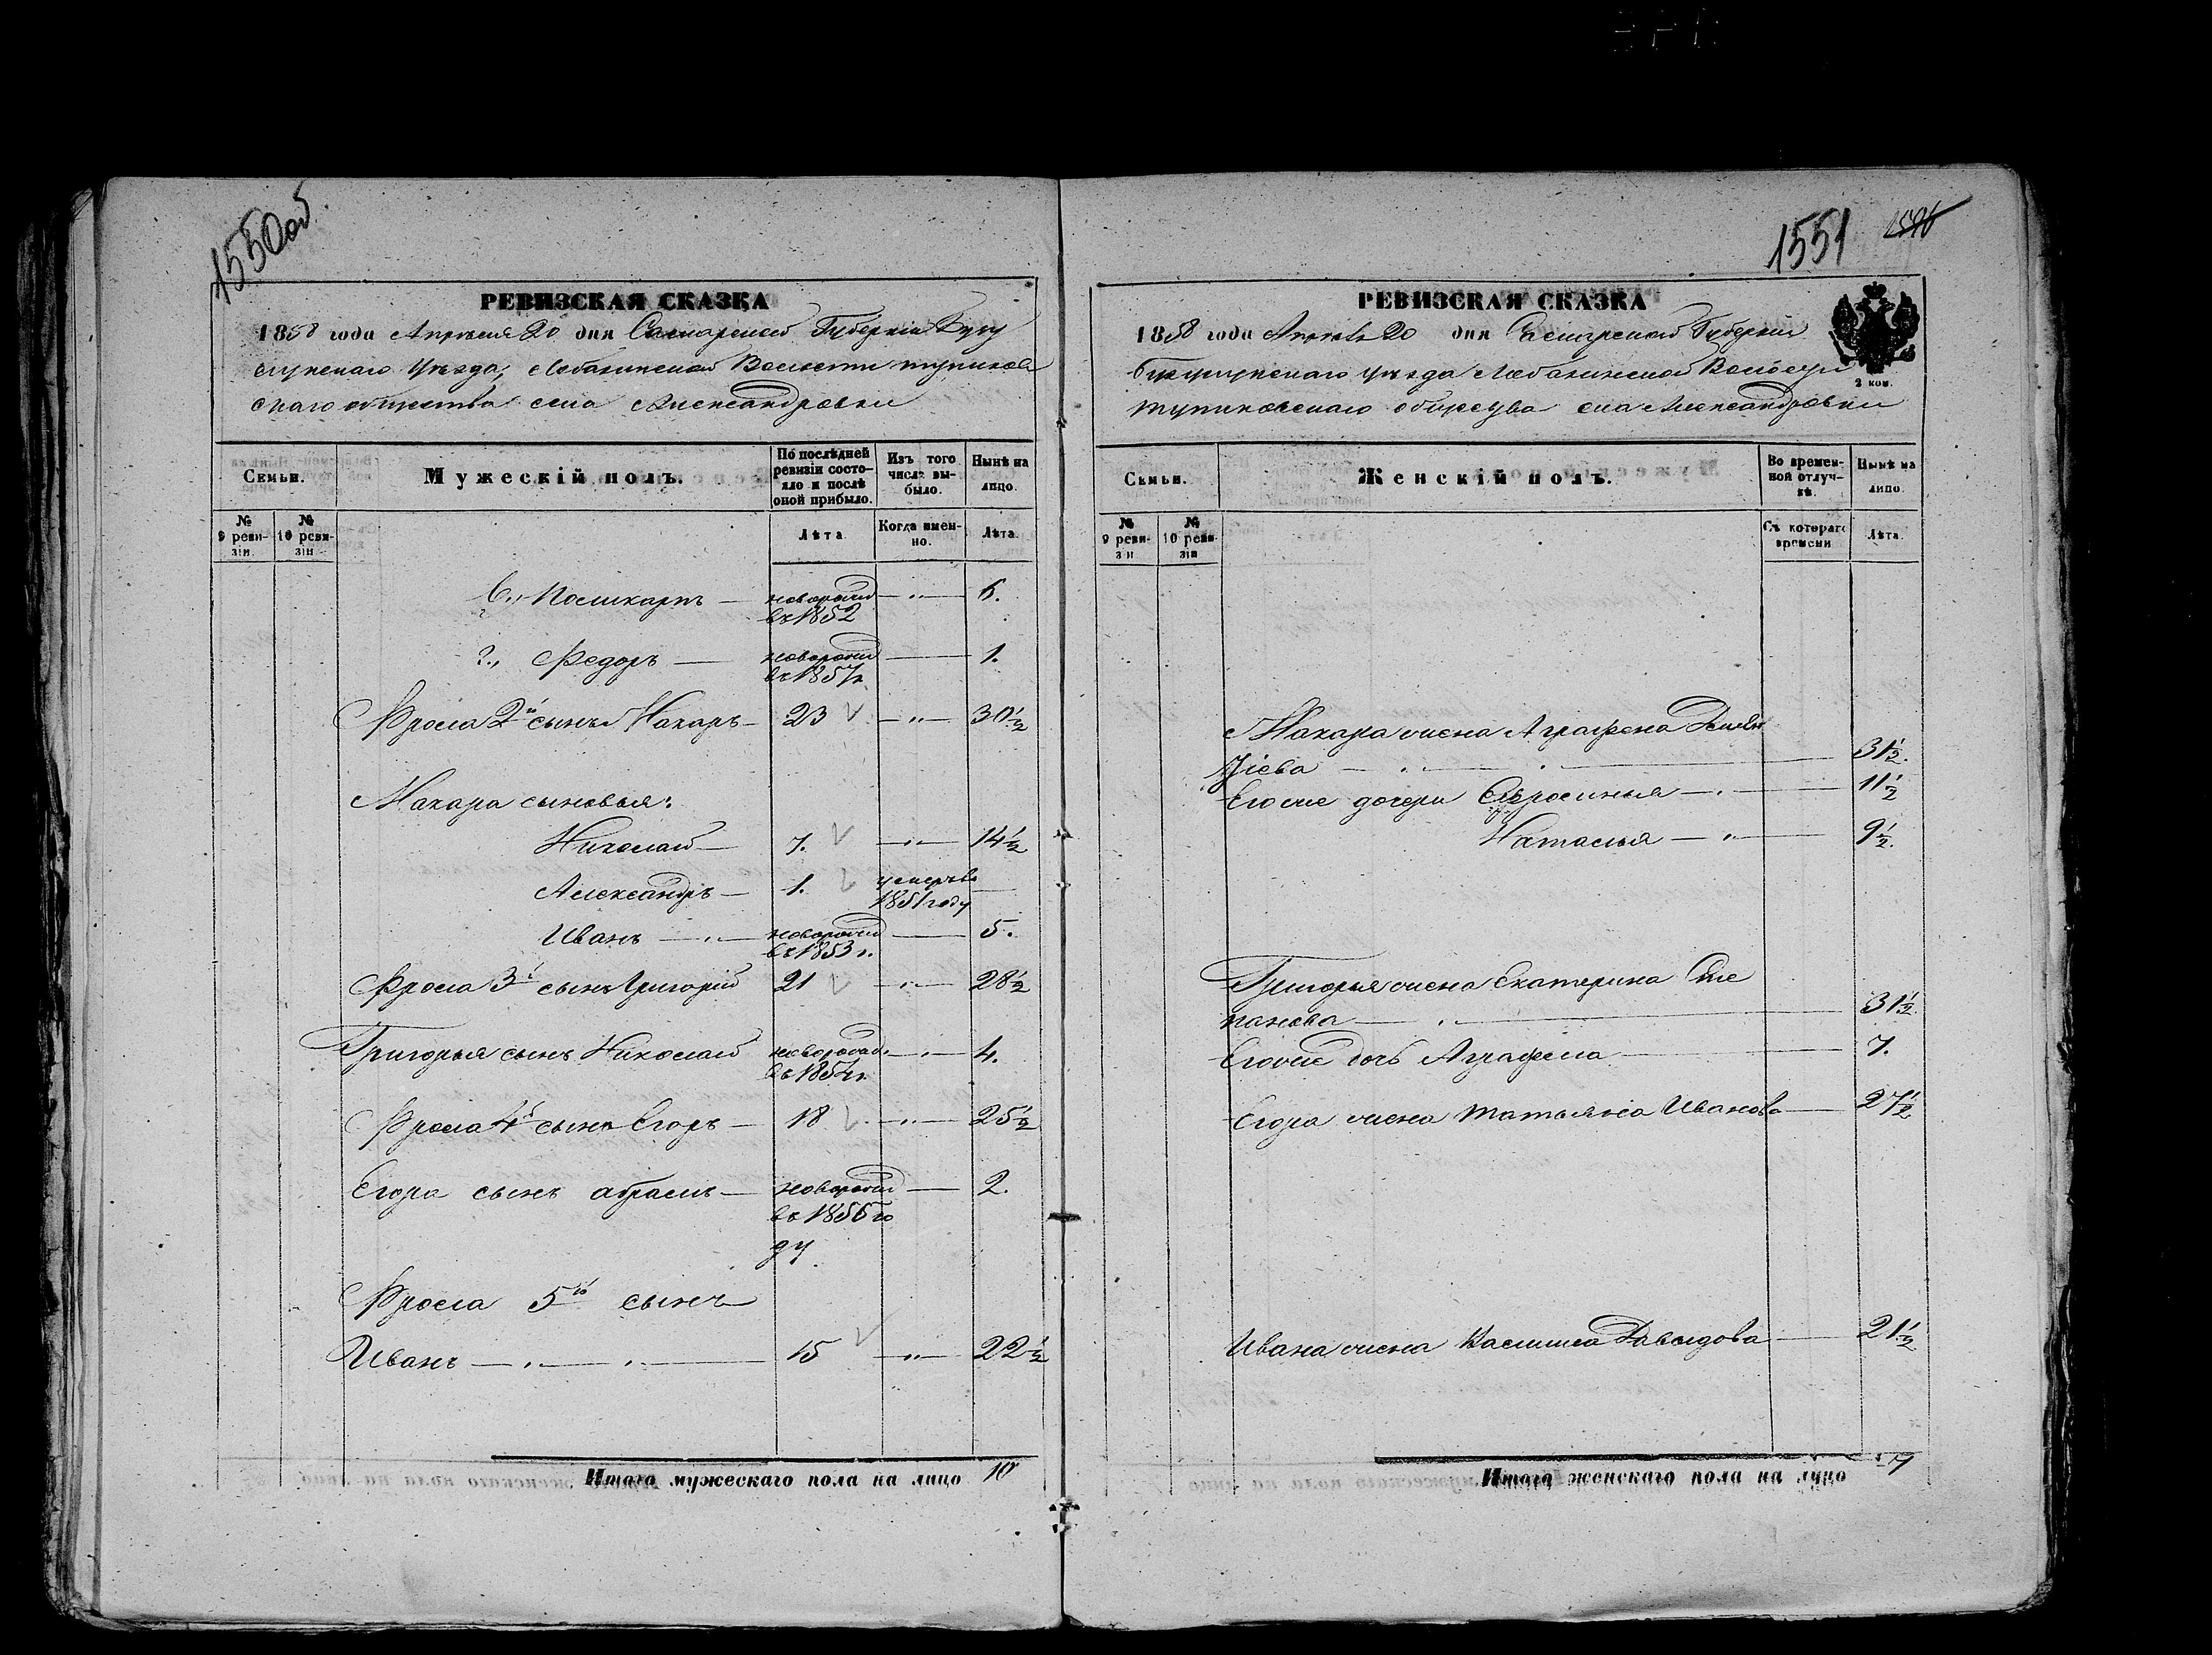 1550об.
РЕВИЗСКАЯ СКАЗКА
1858 года Апреля 20 дня Самарской Губерніи Бугу
сунскаго уѣзда,
скаго общества села Александровки
Семьи.
Мужескій полъ.
По послѣдней ревизіи состояло и послѣ оной прибыло.
Изъ того числа выбыло.
Нынѣ на лицо.
№ 9 ревизіи.
№ 10 ревизіи
Лѣта
Когда именно.
Лѣта.
Поликарпъ — новорожд — " — 6.
въ 1852
2., Федоръ — новорожд — 1.
въ 1857 г
Фрола 2й сынъ Макаръ — 23 — " — 30½
Макара сыновья:
Николай — 7. — " — 14½
Александръ — 1. умеръ въ —
1851 году
Иванъ — " — новорожд — 5.
въ 1853 г.
Фрола 3й сынъ Григорій 21 — " — 28½
Григорья сынъ Николай новорожд. — " — 4.
въ 1854 г.
Фрола 4й сынъ Егоръ — 18 — " — 25½
Егора сынъ абрамъ — новорожд — 2.
въ 1856 го
ду
Фрола 5й сынъ
Иванъ — " — " — 15 — " — 22½
Итого мужескаго пола на лицо 10
1551
РЕВИЗСКАЯ СКАЗКА
1858 года Апреля 20 дня Самарской Губерніи
Бугурусланскаго уѣзда Волости
общества села Александровки
2 коп.
Семьи.
Женскій полъ.
Во временной отлучкѣ.
Нынѣ на лицо.
№ 9 ревизіи
№ 10 ревизіи
Съ котораго времени
Лѣта.
Макара жена Аграфена
— " — " — 31½.
Егоже дочери Ефросинья — " — 11½
Наталья — " — 9½.
Григорья жена Екатерина Сте
панова — " — 31½
Егоже дочь Аграфена — 7.
Егора жена Татьяна Иванова — 27½
Ивана жена Давыдова — 21½
Итого женскаго пола на лицо 7